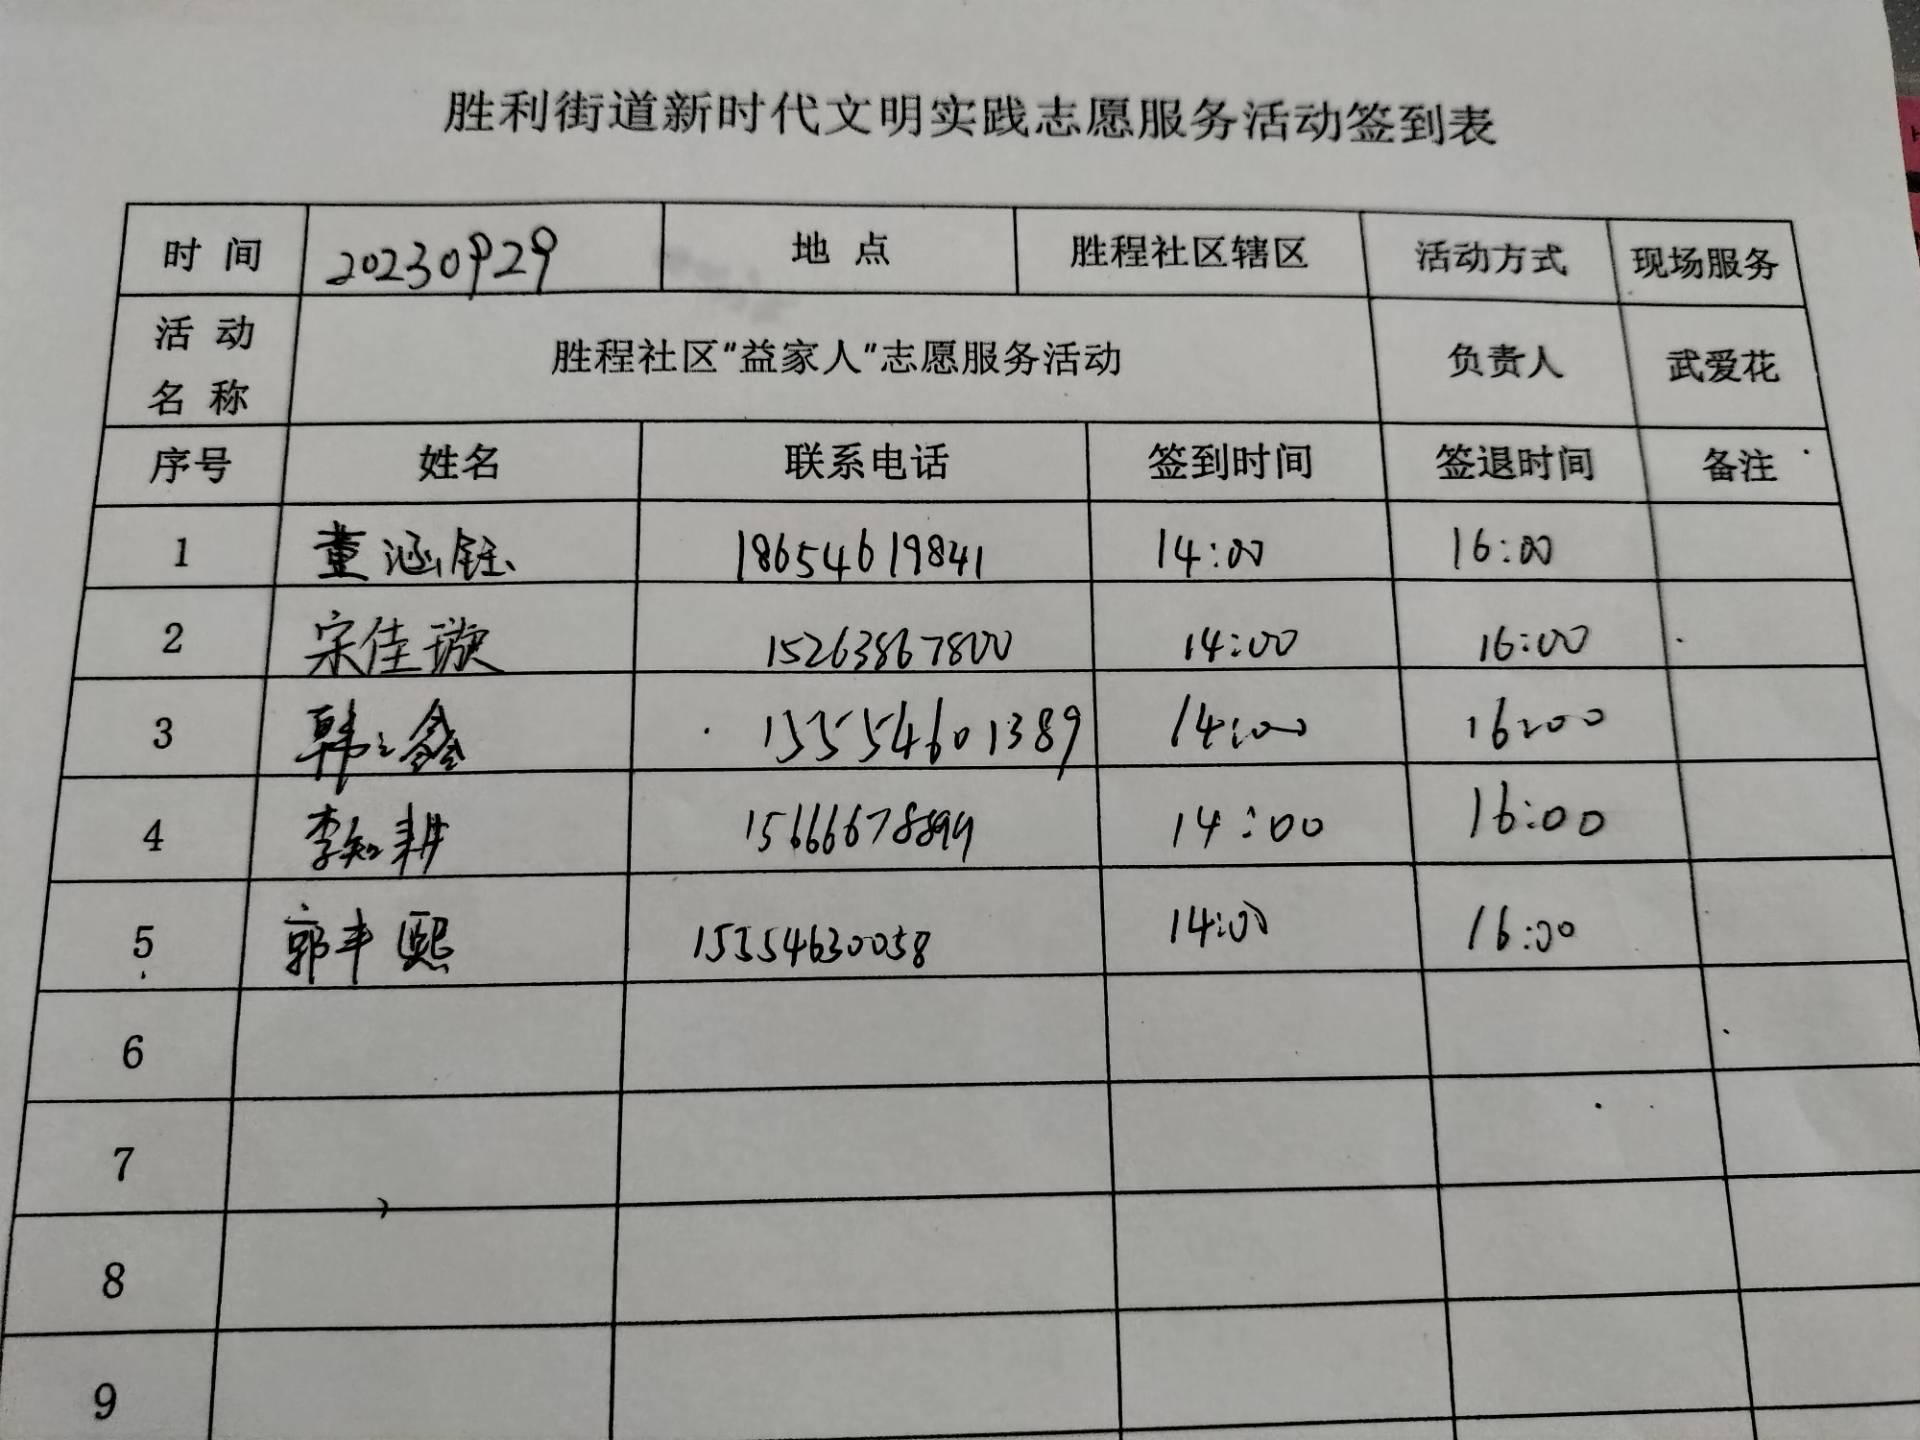 胜利街道新时代文明实践志愿服务活动签到表
时 间 20230929 地 点 胜程社区辖区 活动方式 现场服务
活 动
名 称 胜程社区"益家人"志愿服务活动 负责人 武爱花
序号 姓名 联系电话 签到时间 签退时间 备注
1 董涵钰 18654619841 14:00 16:00
2 宋佳璇 15263867800 14:00 16:00
3 韩鑫 15554601389 14:00 16:00
4 李知耕 15666678899 14:00 16:00
5 郭丰熙 15554630058 14:00 16:00
6
7
8
9